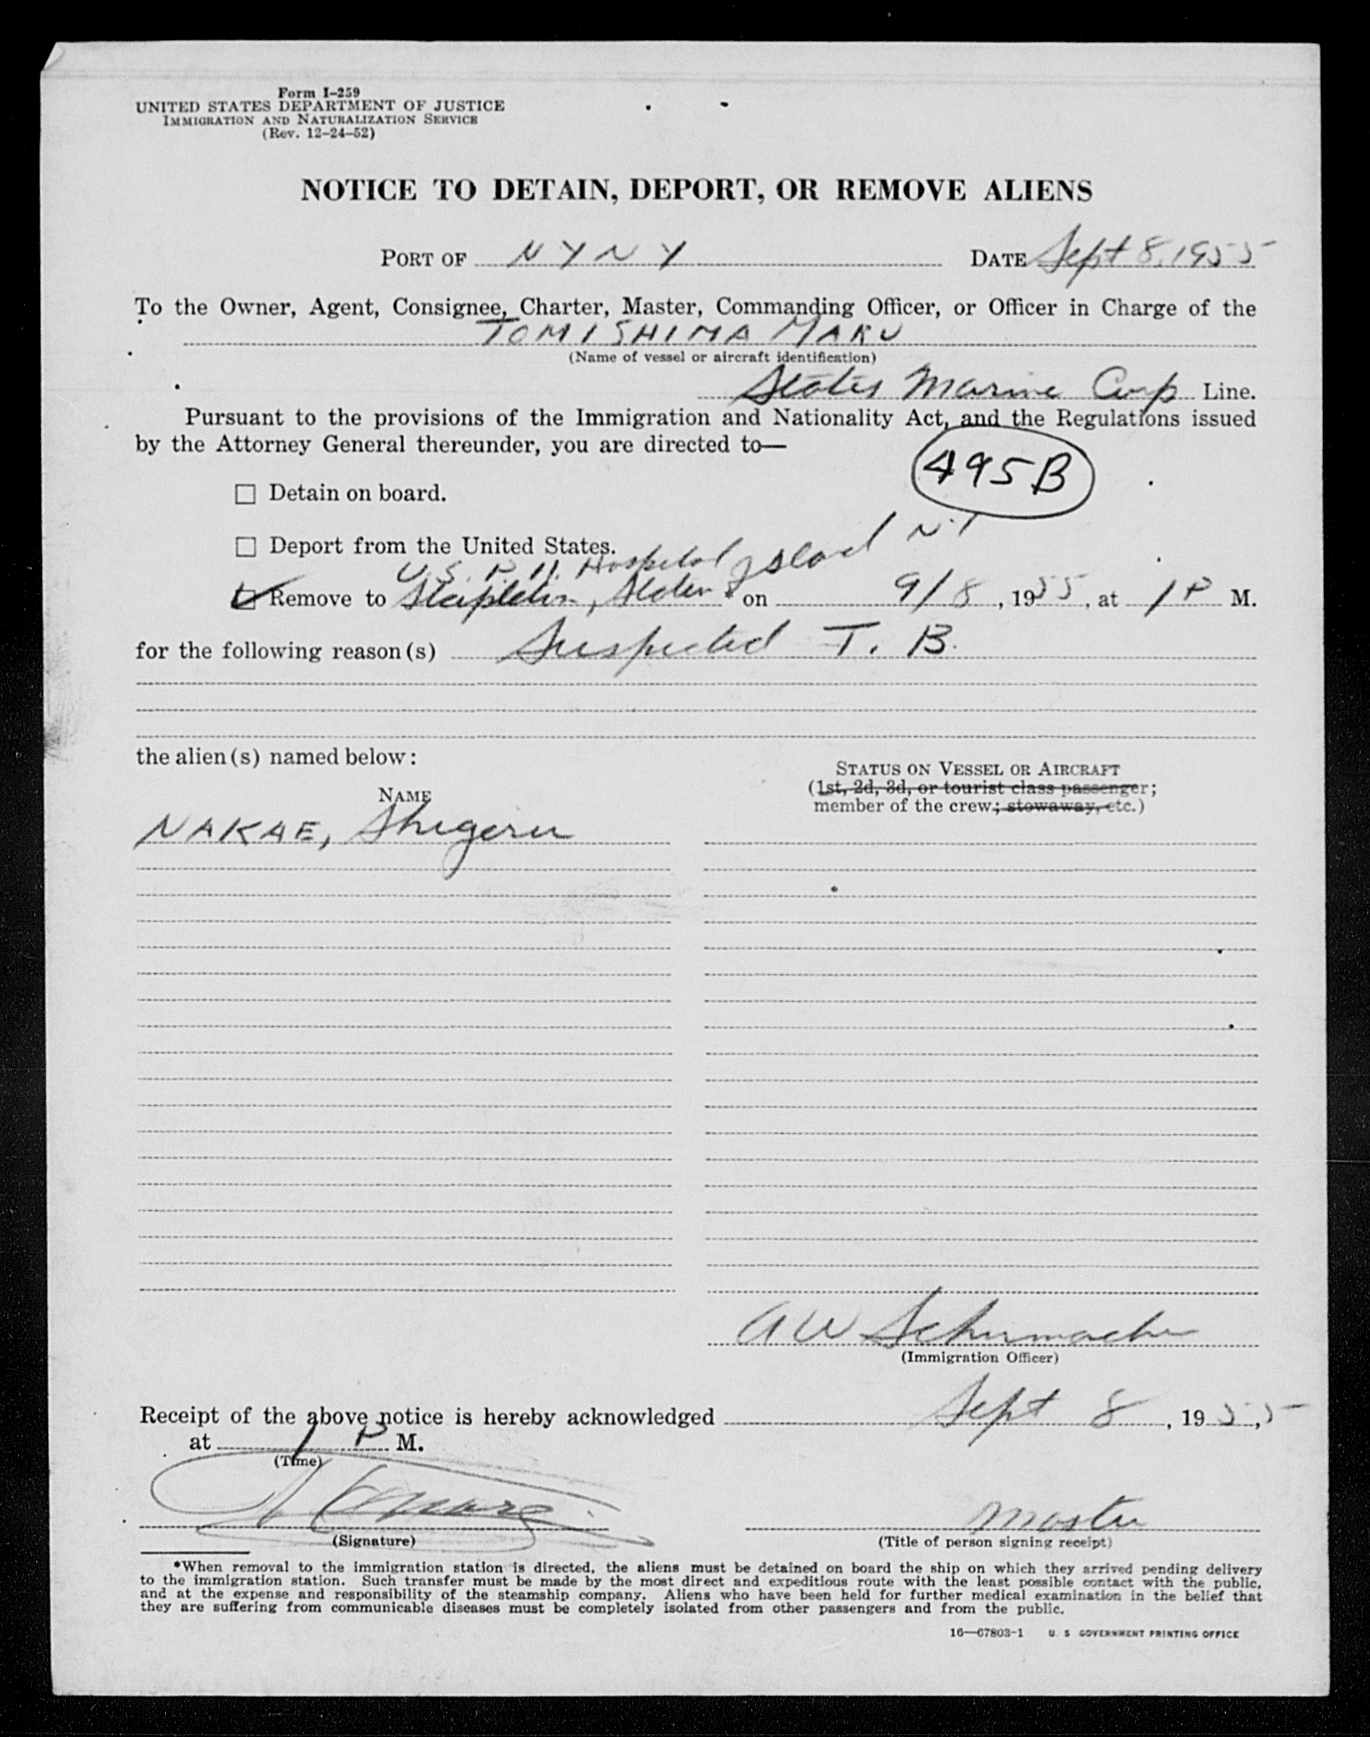 Form I-259
UNITED STATES DEPARTMENT OF JUSTICE
IMMIGRATION AND NATURALIZATION SERVICE
(Rev. 12-24-52)
NOTICE TO DETAIN, DEPORT, OR REMOVE ALIENS
PORT OF N Y N Y DATE Sept 8, 1955
To the Owner, Agent, Consignee, Charter, Master, Commanding Officer, or Officer in Charge of the
TOMISHIMA MARU
(Name of vessel or aircraft identification)
States Marine Corp Line.
Pursuant to the provisions of the Immigration and Nationality Act, and the Regulations issued
by the Attorney General thereunder, you are directed to—
495B
☐ Detain on board.
☐ Deport from the United States.
U.S. P.H. Hospital
☑ Remove to Stapleton, Staten Island N.Y on 9/8, 1955, at 1 P M.
for the following reason(s) Suspected T. B.
the alien(s) named below:
NAME
STATUS ON VESSEL OR AIRCRAFT
(1st, 2d, 3d, or tourist class passenger;
member of the crew; stowaway, etc.)
NAKAE, Shigeru
A W Schumacher
(Immigration Officer)
Receipt of the above notice is hereby acknowledged Sept 8, 1955,
at 1 P M.
(Time)
(Signature)
Master
(Title of person signing receipt)
*When removal to the immigration station is directed, the aliens must be detained on board the ship on which they arrived pending delivery
to the immigration station. Such transfer must be made by the most direct and expeditious route with the least possible contact with the public,
and at the expense and responsibility of the steamship company. Aliens who have been held for further medical examination in the belief that
they are suffering from communicable diseases must be completely isolated from other passengers and from the public.
16—67803-1 U. S. GOVERNMENT PRINTING OFFICE